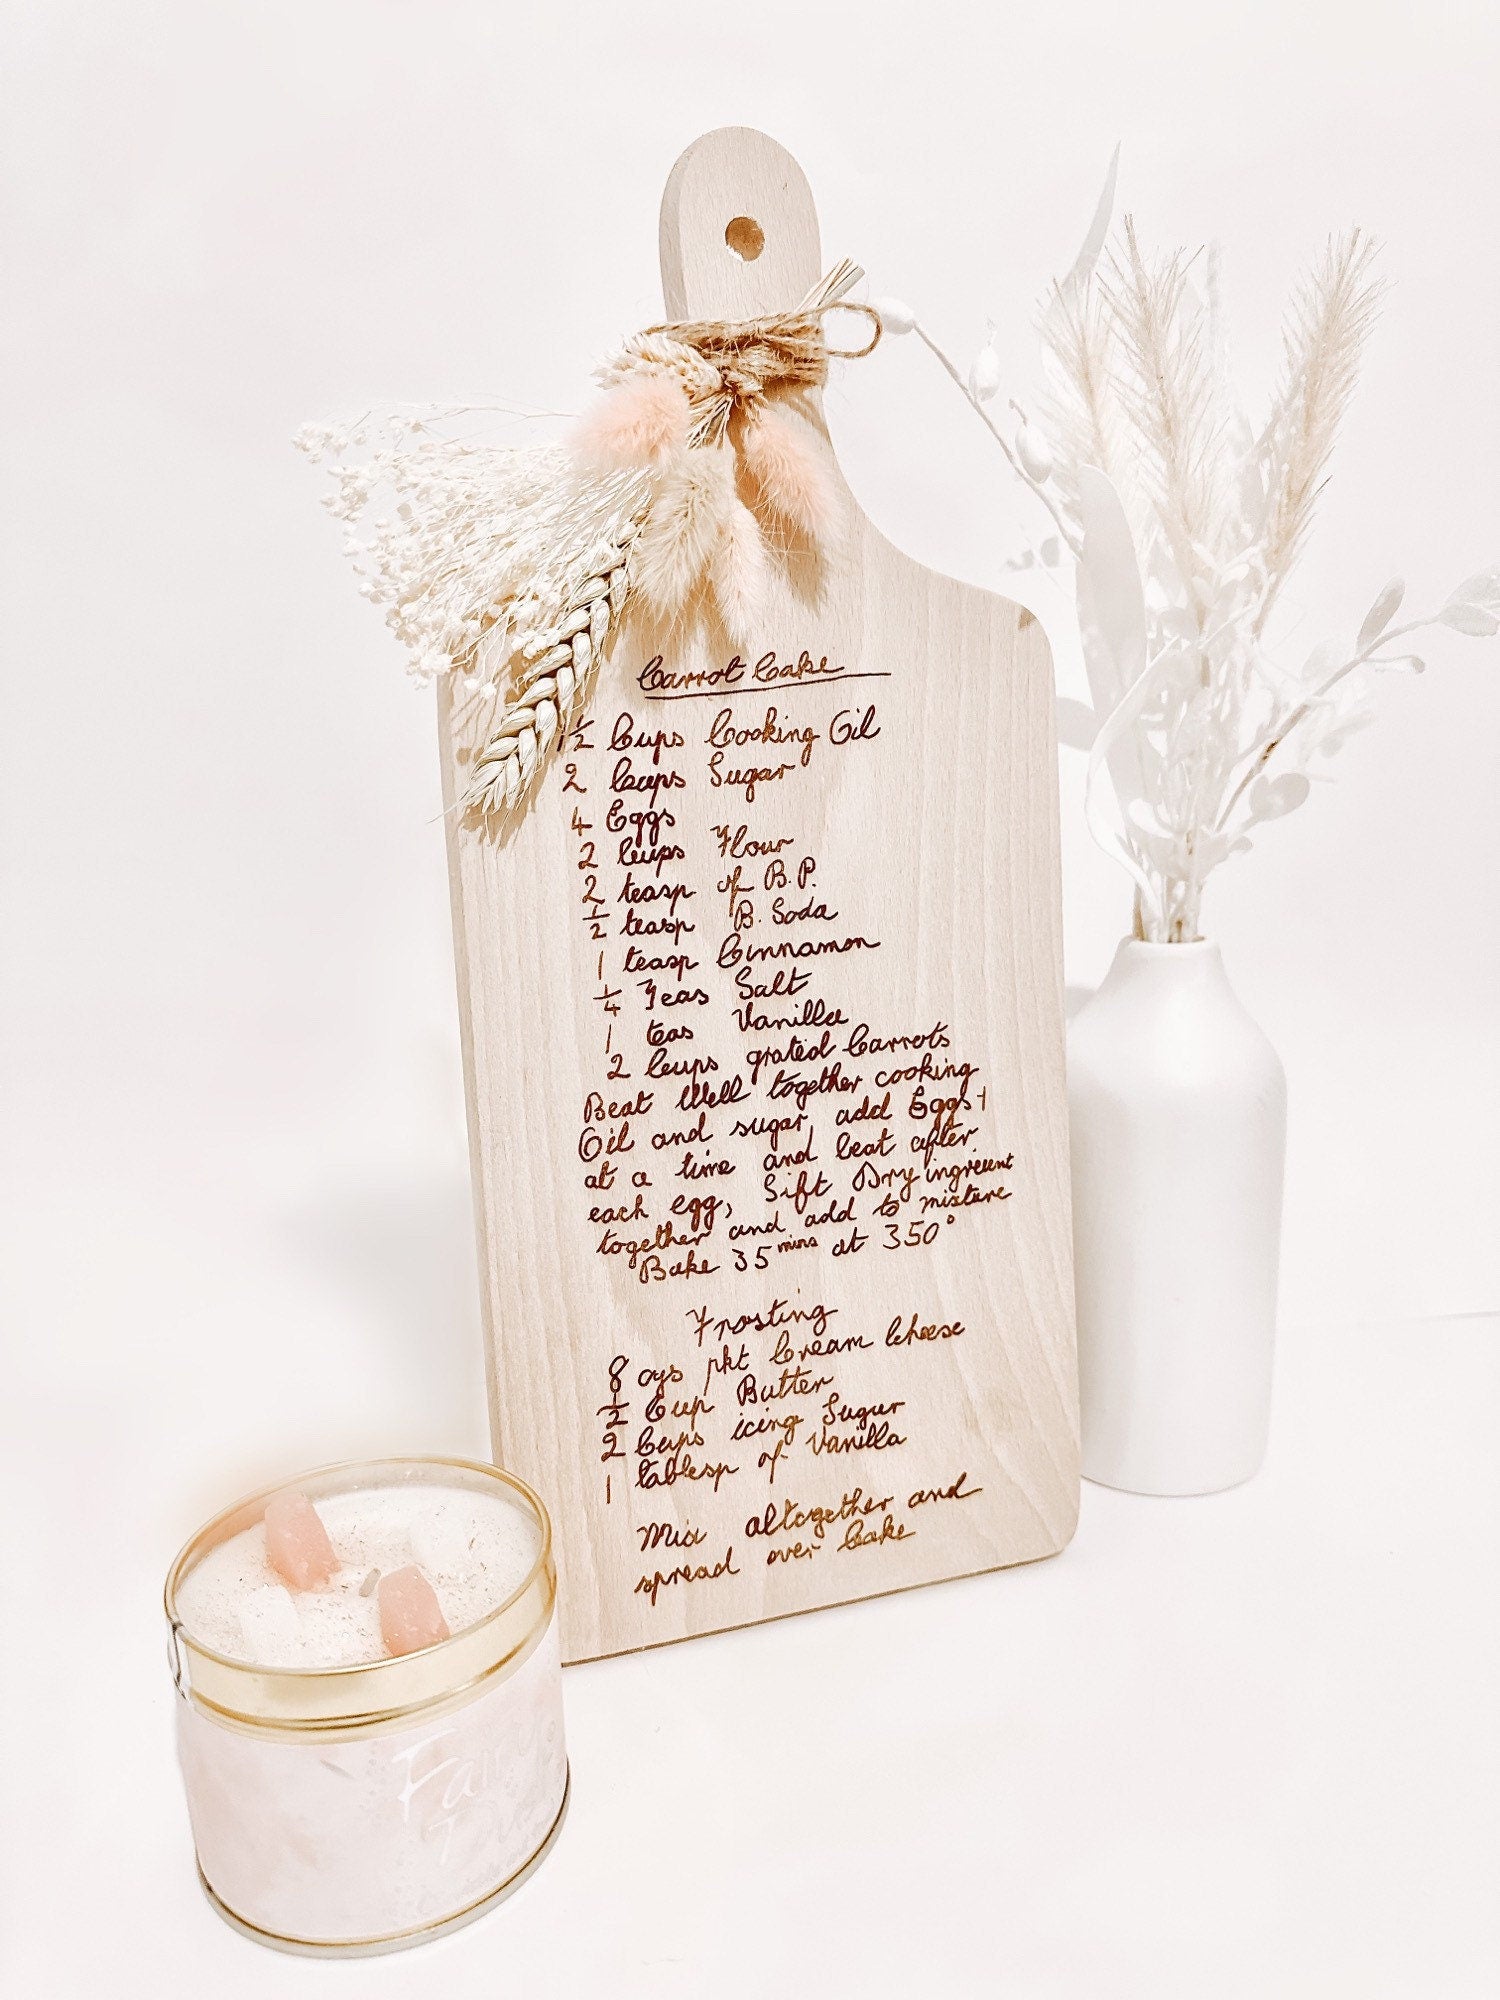 Carrot Cake
1½ Cups Cooking Oil
2 Cups Sugar
4 Eggs
2 Cups Flour
2 teasp of B.P.
½ teasp B. Soda
1 teasp Cinnamon
¼ Teas Salt
1 teas Vanilla
2 Cups grated Carrots
Beat Well together cooking
Oil and sugar, add Eggs 1
at a time and beat after
each egg, Sift Dry ingrieent
together and add to mixture
Bake 35 mins at 350°
Frosting
8 ozs pkt Cream Cheese
½ Cup Butter
2 Cups icing Sugar
1 tablesp of Vanilla
Mix altogether and
spread over Cake
Fairy